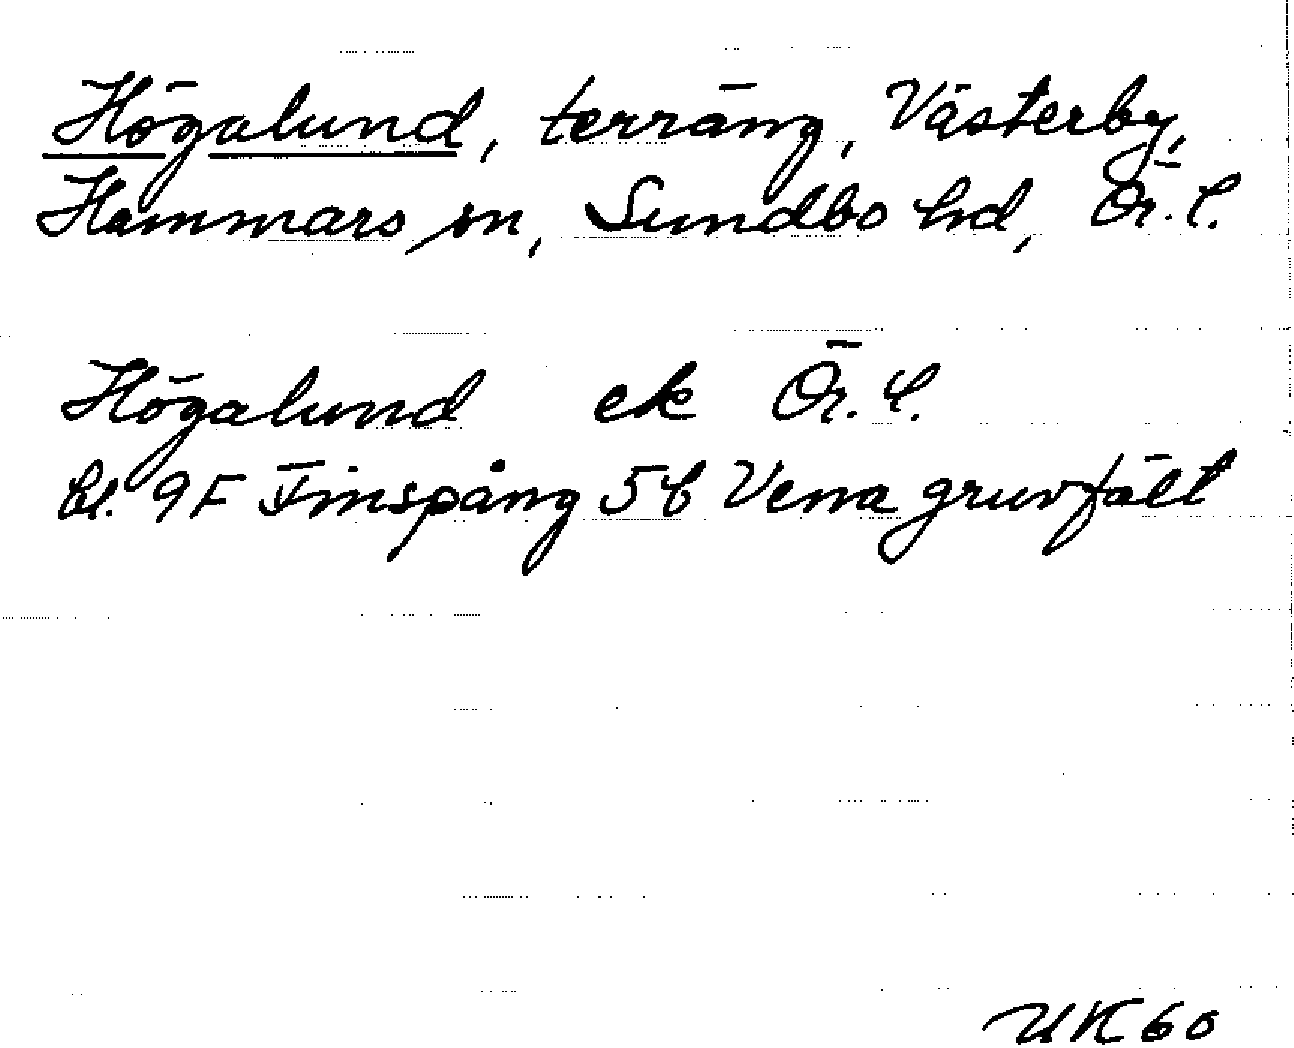 Högalund, terräng, Västerby,
Hammars sn, Sundbo hd, Ör. l.
Högalund ek Ör. l.
bl. 9F Finspång 5b Vena gruvfält
UK 60